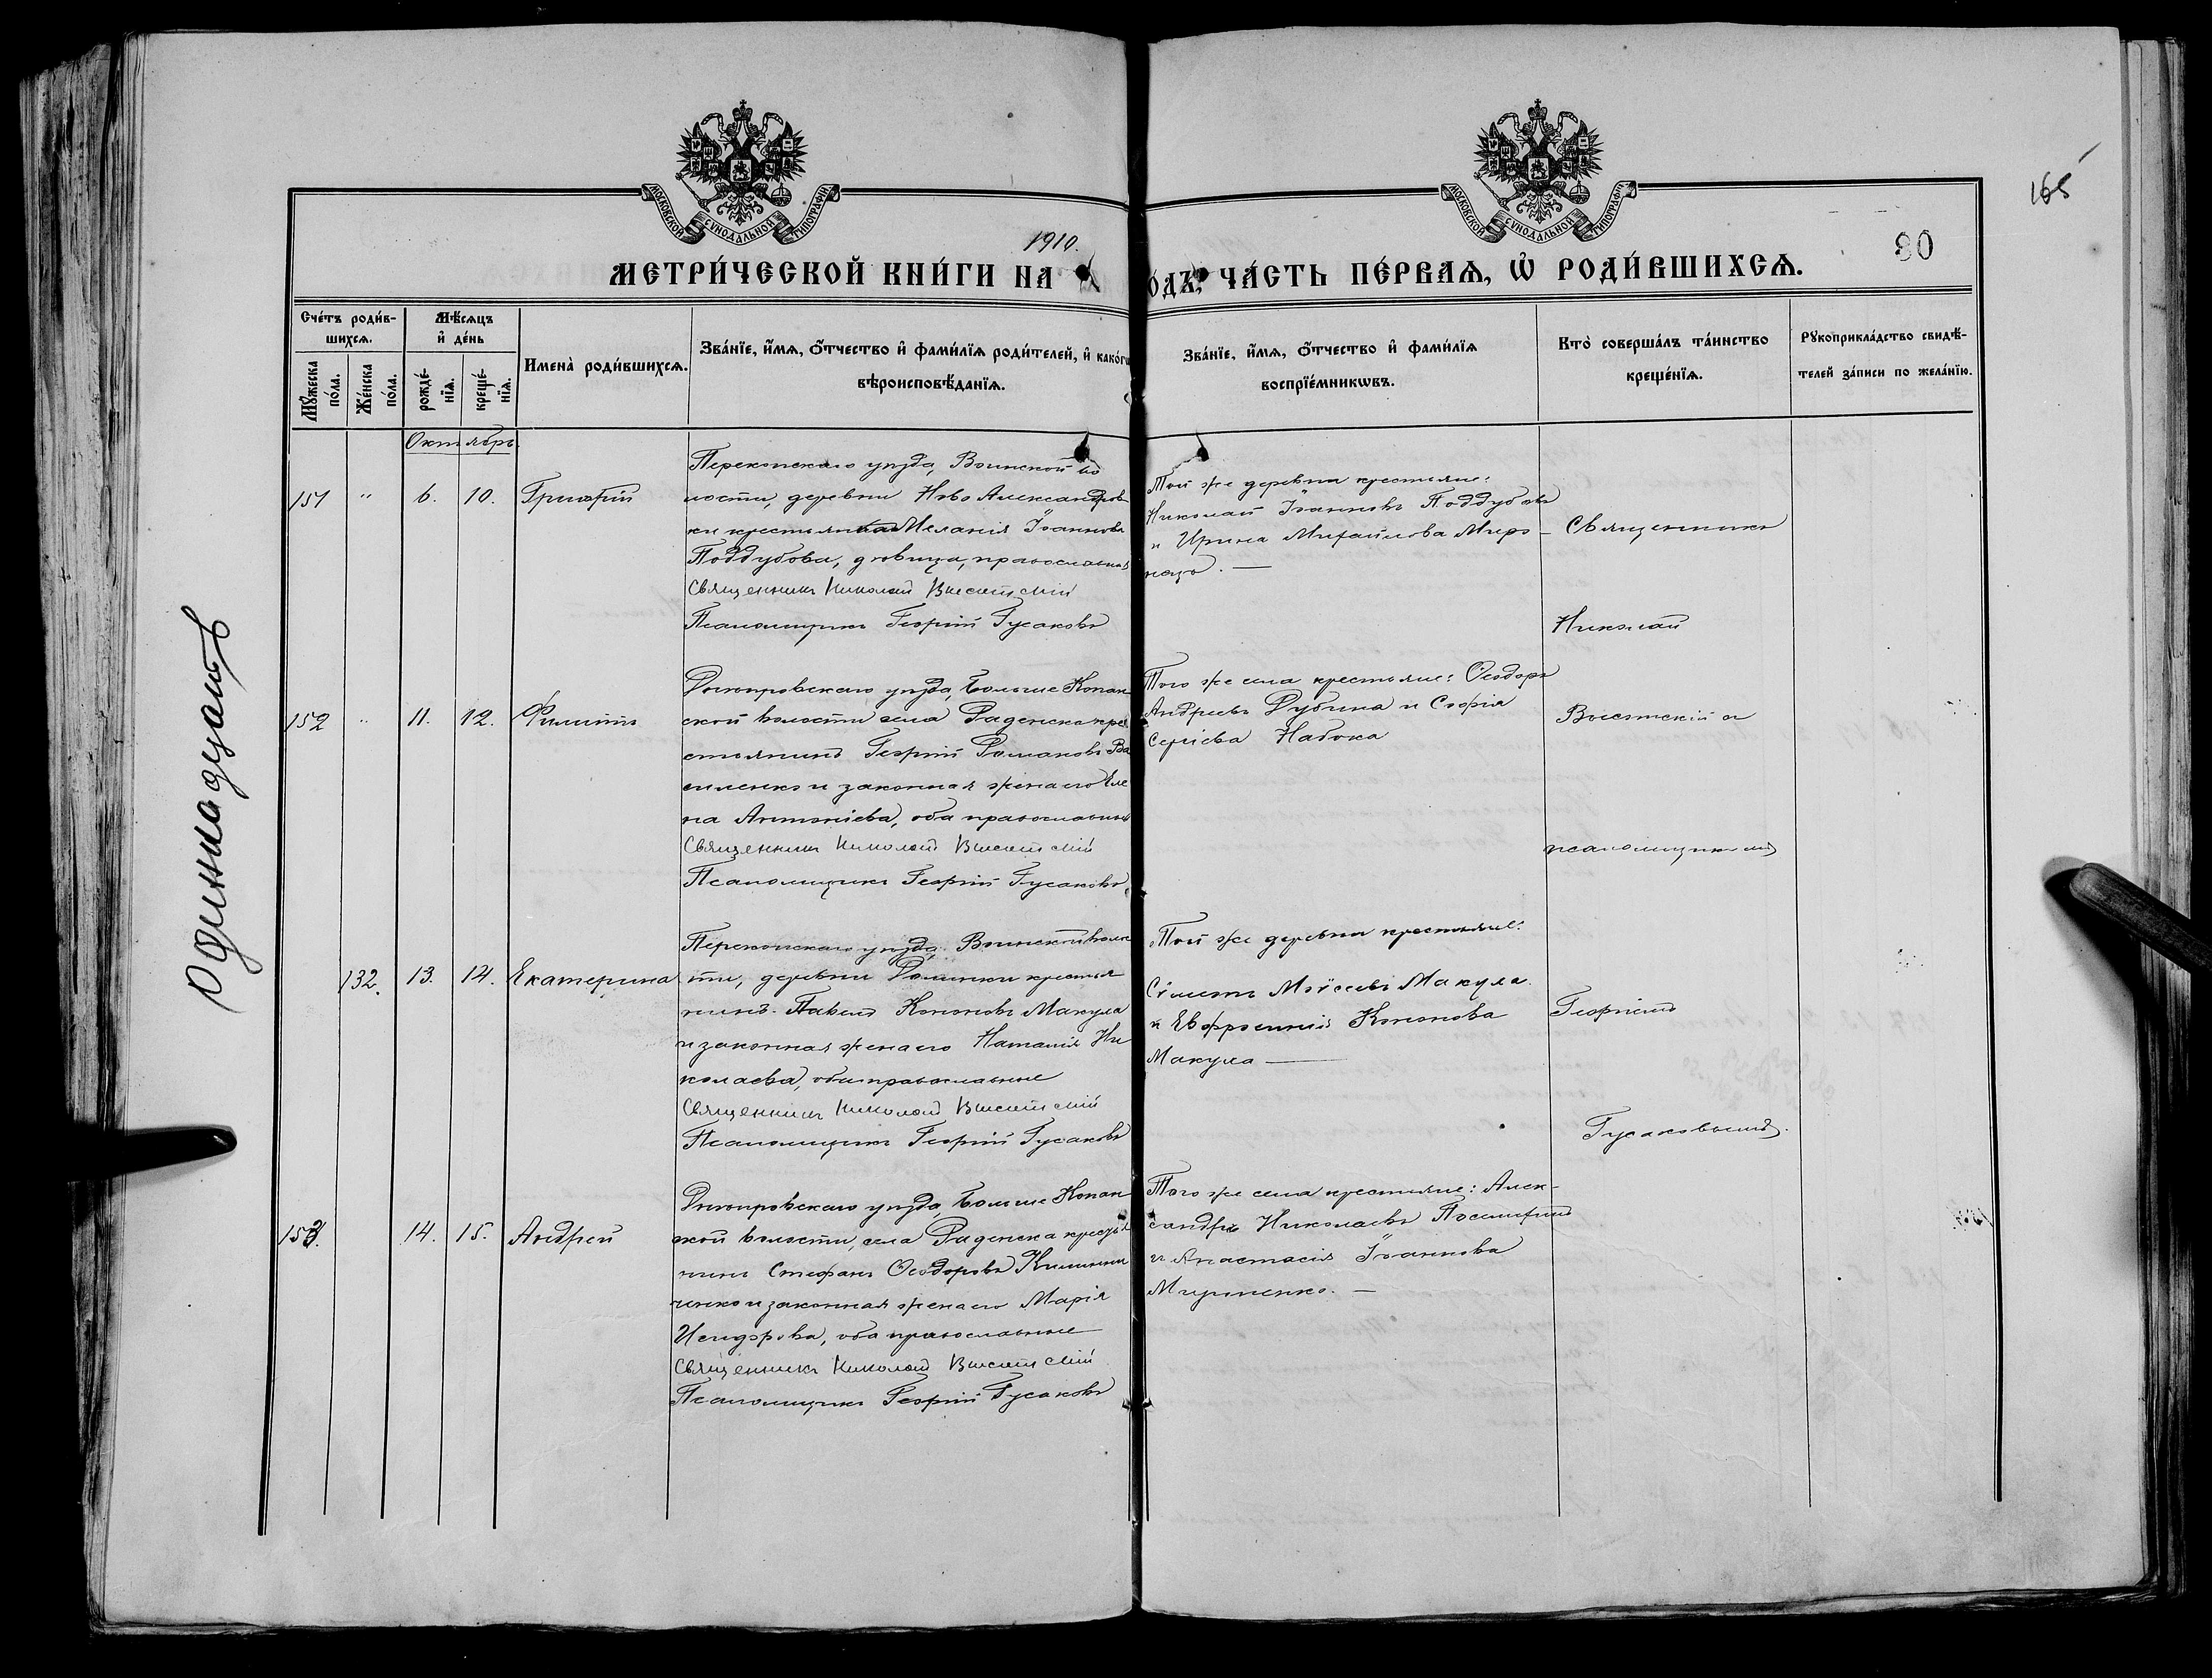 165
МОСКОВСКОЙ СѴНОДАЛЬНОЙ ТИПОГРАФІИ
МОСКОВСКОЙ СѴНОДАЛЬНОЙ ТИПОГРАФІИ
1910.
90
МЕТРИ́ЧЕСКОЙ КНИ́ГИ НА
О́ДЪ, ЧА́СТЬ ПЕ́РВАѦ, Ѡ҆ РОДИ́ВШИХСѦ.
Сче́тъ роди́в-
шихсѧ.
Мꙋ́жеска по́ла.
Же́нска по́ла.
Мѣ́сѧцъ
и҆ де́нь
рожде́-
нїѧ.
креще́-
нїѧ.
Имена̀ роди́вшихсѧ.
Зва́нїе, и҆́мѧ, ѻ҆́тчество и҆ фами́лїѧ роди́телей, и҆ како́гѡ
вѣроисповѣ́данїѧ.
Зва́нїе, и҆́мѧ, ѻ҆́тчество и҆ фами́лїѧ
воспрїе́мникѡвъ.
Кто̀ соверша́лъ та́инство
креще́нїѧ.
Рꙋкоприкла́дство свидѣ́-
телей за́писи по жела́нїю.
Одиннадцать
Октябрь
151 " 6. 10. Григорій
Перекопскаго уѣзда, Воинской во
лости, деревни Ново Александров
ки крестьянка Меланія Іоаннова
Поддубова, дѣвица, православная
Священникъ Николай Высотскій
Псаломщикъ Георгій Гусаковъ
Той же деревни крестьяне:
Николай Іоанновъ Поддубовъ
и Ирина Михайлова
Священникъ
Николай
152 " 11. 12. Филиппъ
Днѣпровскаго уѣзда, Больше Копан
ской волости села Раденска кре
стьянинъ Георгій Романовъ Ва
силенко и законная жена его Еле
на Антоніева, оба православные
Священникъ Николай Высотскій
Псаломщикъ Георгій Гусаковъ
Того же села крестьяне: Ѳеодоръ
Андреевъ Дубина и Софія
Сергіева Набока
Высотскій съ
псаломщикомъ
132. 13. 14. Екатерина
Перекопскаго уѣзда, Воинской волос
ти, деревни крестья
нинъ Павелъ Кононовъ Макуха
и законная жена его Наталія Ни
колаева, оба православные
Священникъ Николай Высотскій
Псаломщикъ Георгій Гусаковъ
Той же деревни крестьяне:
Моисеевъ Макуха
и Евфросинія Кононова
Макуха
Георгіемъ
Гусаковымъ.
153. 14. 15. Андрей
Днѣпровскаго уѣзда, Больше Копан
ской волости, села Раденска крестья
нинъ Стефанъ Ѳеодоровъ
ченко и законная жена его Марія
Исидорова, оба православные
Священникъ Николай Высотскій
Псаломщикъ Георгій Гусаковъ
Того же села крестьяне: Алек-
сандръ Николаевъ
и Анастасія Іоаннова